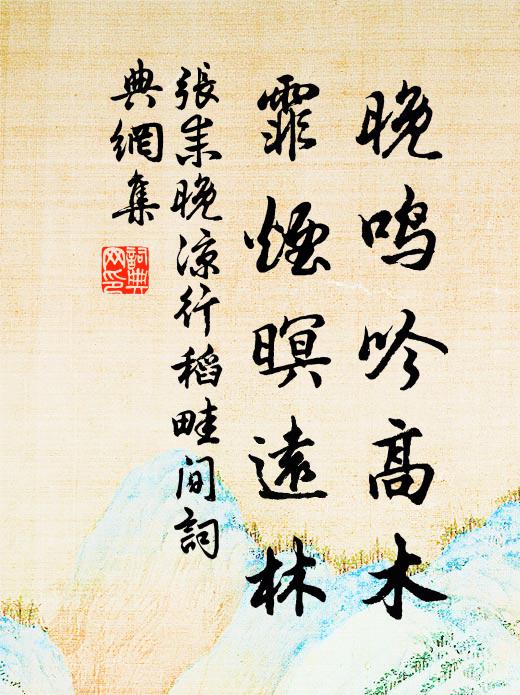 晚鸣吟高木
霏煙暝遠林
張耒晚涼行稻畦间詞
典網集
詞典
网印